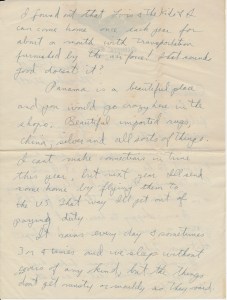 I found out that you & the kids & I
can come home once each year for
about a month with transportation
furnished by the air force! That sounds
good doesn't it?
Panama is a beautiful place
and you would go crazy here in the
shops. Beautiful imported rugs,
china, silver and all sorts of things.
I can't make connections in time
this year, but next year I'll send
some home by flying them to
the US. That way I'll get out of
paying duty.
It rains every day & sometimes
3 or 4 times and we sleep without
cover of any kind, but the things
don't get musty or moldy as they said